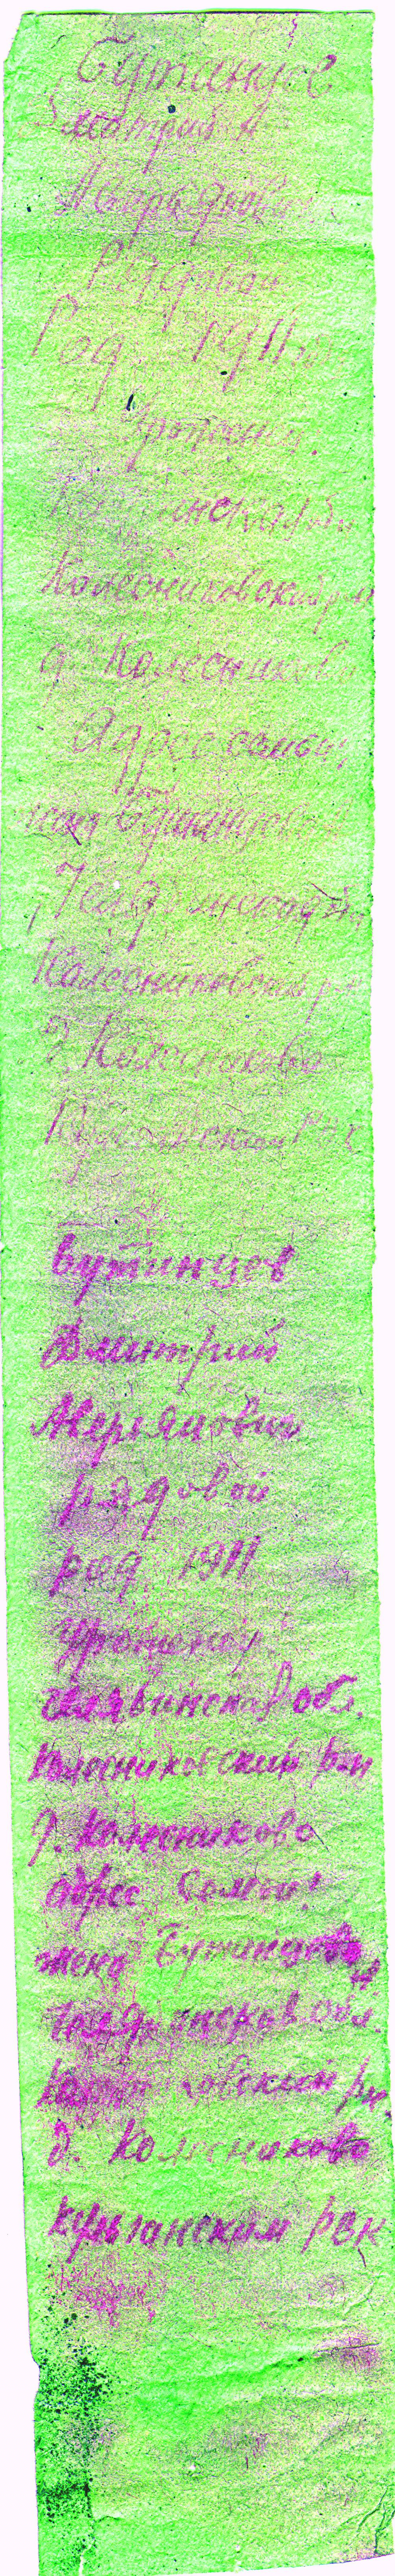 Бутинцев
Дмитрий
Мерьянович
Рядовой
Род 1911 год
Урожен.
нская обл.
Колесниковский р-н
д. Колесниково
Адрес семьи:
жена Бутинцева
Челябинская обл.
Колесниковский р-н
д. Колесниково
РВК
Бутинцев
Дмитрий
Мерьянович
рядовой
род 1911
уроженец
Челябинской обл.
Колесниковский р-н
д. Колесниково
адрес семьи:
жена Бутинцева
обл.
р-н
д. Колесниково
Курганским РВК